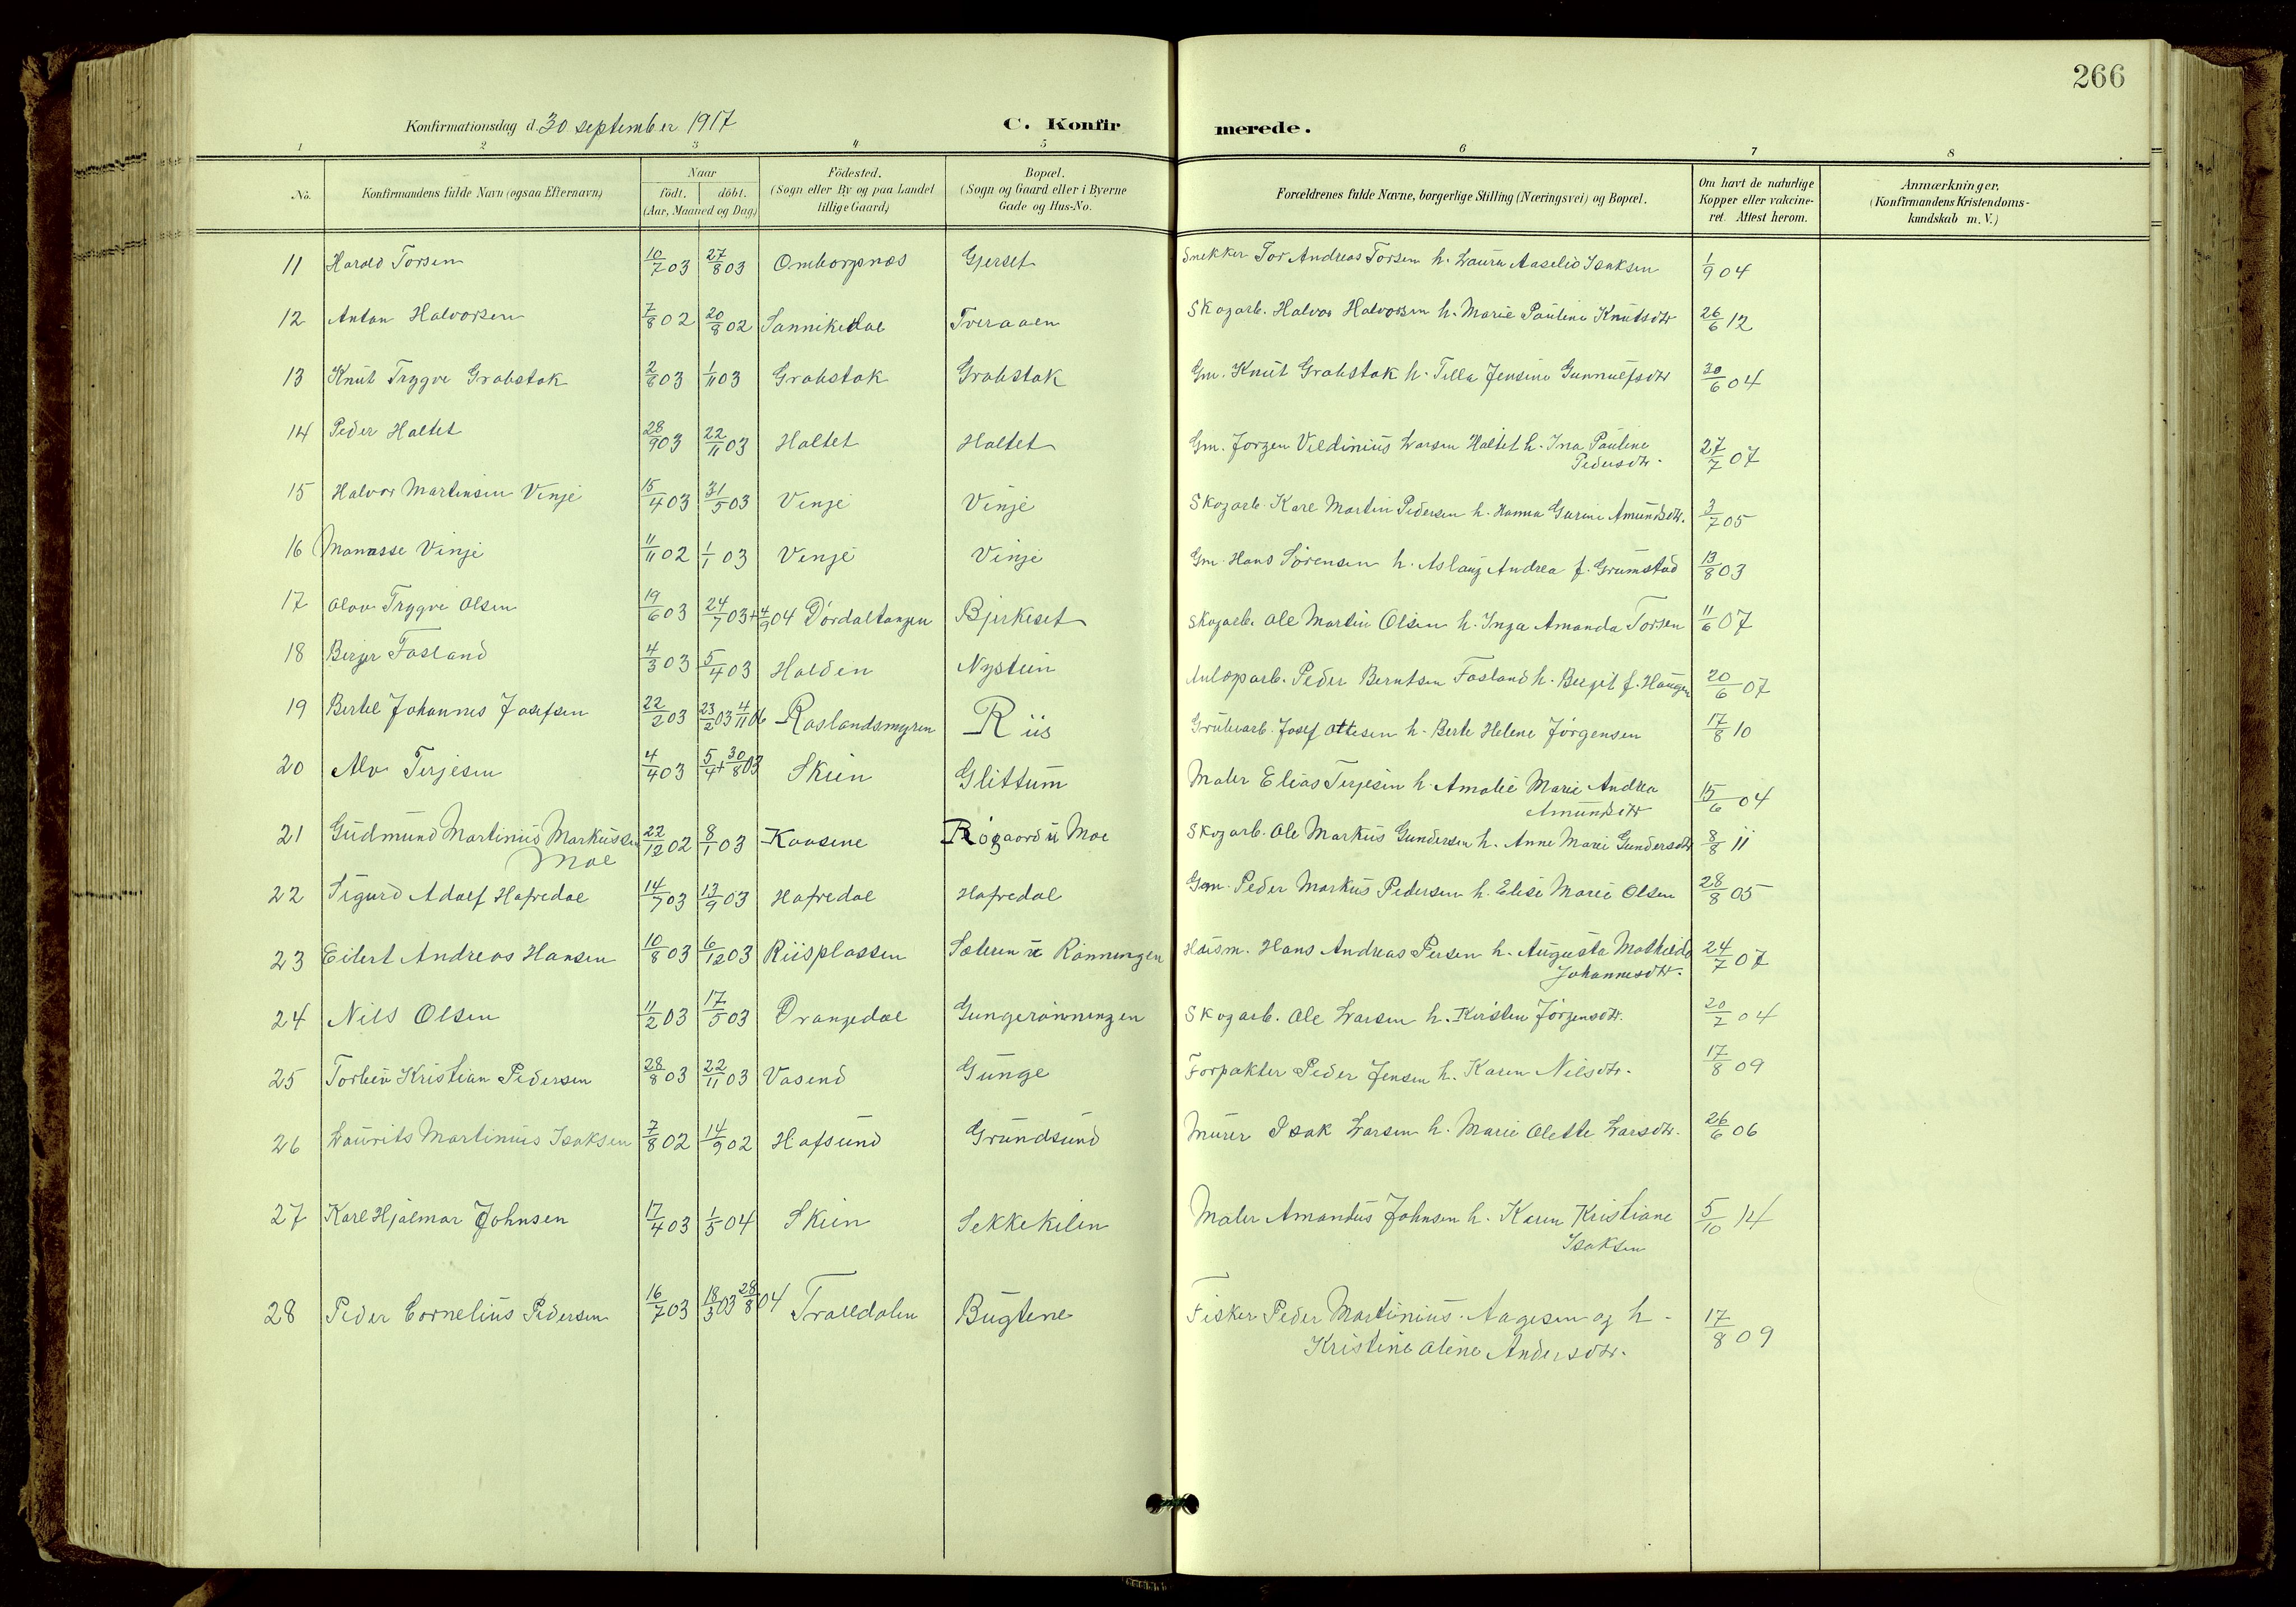 266
Konfirmationsdag d. 30 september 1917 C. Konfirmerede.
1 2 3 4 5 6 7 8
No. Konfirmandens fulde Navn (ogsaa Efternavn) Naar födt. döbt. (Aar, Maaned og Dag.) Födested. (Sogn eller By og paa Landet tillige Gaard.) Bopæl. (Sogn og Gaard eller i Byerne Gade og Hus-No. Forældrenes fulde Navne, borgerlige Stilling (Næringsvei) og Bopæl. Om havt de naturlige Kopper eller vakcineret. Attest herom. Anmærkninger. (Konfirmandens Kristendomskundskab m. V.)
11 Harald Torsen 10/7 03 27/8 03 Omborgsnæs Gjerset Snekker Tor Andreas Torsen h. Laura Aaselie Isaksen 1/9 04
12 Anton Halvorsen 7/8 02 20/8 02 Sannikedal Tveraaen Skogarb. Halvor Halvorsen h. Marie Pauline Knutsdtr 26/6 12
13 Knut Trygve Grabstok 2/8 03 1/11 03 Grabstok Grabstok Gm. Knut Grabstok h. Tilla Jensine Gunnulfsdtr 30/6 04
14 Peder Haltet 28/9 03 22/11 03 Haltet Haltet Gm. Jørgen Veldinius Larsen Haltet h. Ina Pauline
Pedersdtr. 27/7 07
15 Halvor Martinsen Vinje 15/4 03 31/5 03 Vinje Vinje Skogarb. Karl Martin Pedersen h. Hanna Gurine Amundsdtr. 3/7 05
16 Manasse Vinje 11/11 02 1/1 03 Vinje Vinje Gm. Hans Sørensen h. Aslaug Andrea f. Grumstad 13/8 03
17 Olav Trygve Olsen 19/6 03 24/7 03 + 4/9 04 Dørdaltangen Bjerkeset Skogarb. Ole Martin Olsen h. Inga Amanda Torsen 11/6 07
18 Birger Fosland 4/3 03 5/4 03 Halden Nystein Anlægsarb. Peder Berntsen Fosland h. Bergit f. Haugen 20/6 07
19 Bertel Johannes Josefsen 22/2 03 23/2 03 4/11 06 Roslandsmyren Riis Grubearb. Josef Ottesen h. Berte Helene Jørgensen 17/8 10
20 Alv Terjesen 4/4 03 5/4 + 30/8 03 Skien Glittum Maler Elias Terjesen h. Amalie Marie Andrea
Amundsdtr 15/6 04
21 Gudmund Martinius Markussen
Moe 22/12 02 8/1 03 Kaasene Røgaard u Moe Skogarb. Ole Markus Gundersen h. Anne Marie Gundersdtr 8/8 11
22 Sigurd Adolf Hafredal 14/7 03 13/9 03 Hafredal Hafredal Gm. Peder Markus Pedersen h. Elise Marie Olsen 28/8 05
23 Eilert Andreas Hansen 10/8 03 6/12 03 Riisplassen Sæteren u Rønningen Husm. Hans Andreas Persen h. Augusta Mathilde
Johannesdtr. 24/7 07
24 Nils Olsen 11/2 03 17/5 03 Drangedal Gungerønningen Skogarb. Ole Larsen h. Kirstine Jørgensdtr. 20/7 04
25 Torleiv Kristian Pedersen 28/8 03 22/11 03 Vasend Gunge Forpakter Peder Jensen h. Karen Nilsdtr. 17/8 09
26 Laurits Martinius Isaksen 7/8 02 14/9 02 Hafsund Grundsund Murer Isak Larsen h. Marie Olette Larsdtr. 26/6 06
27 Karl Hjalmar Johnsen 17/4 03 1/5 04 Skien Sekkekilen Maler Amandus Johnsen h. Karen Kristiane
Isaksen 5/10 14
28 Peder Cornelius Pedersen 16/7 03 18/3 03 28/8 04 Tralldalen Bugtene Fisker Peder Martinius Aagesen og h.
Kristine Oline Andersdtr. 17/8 09